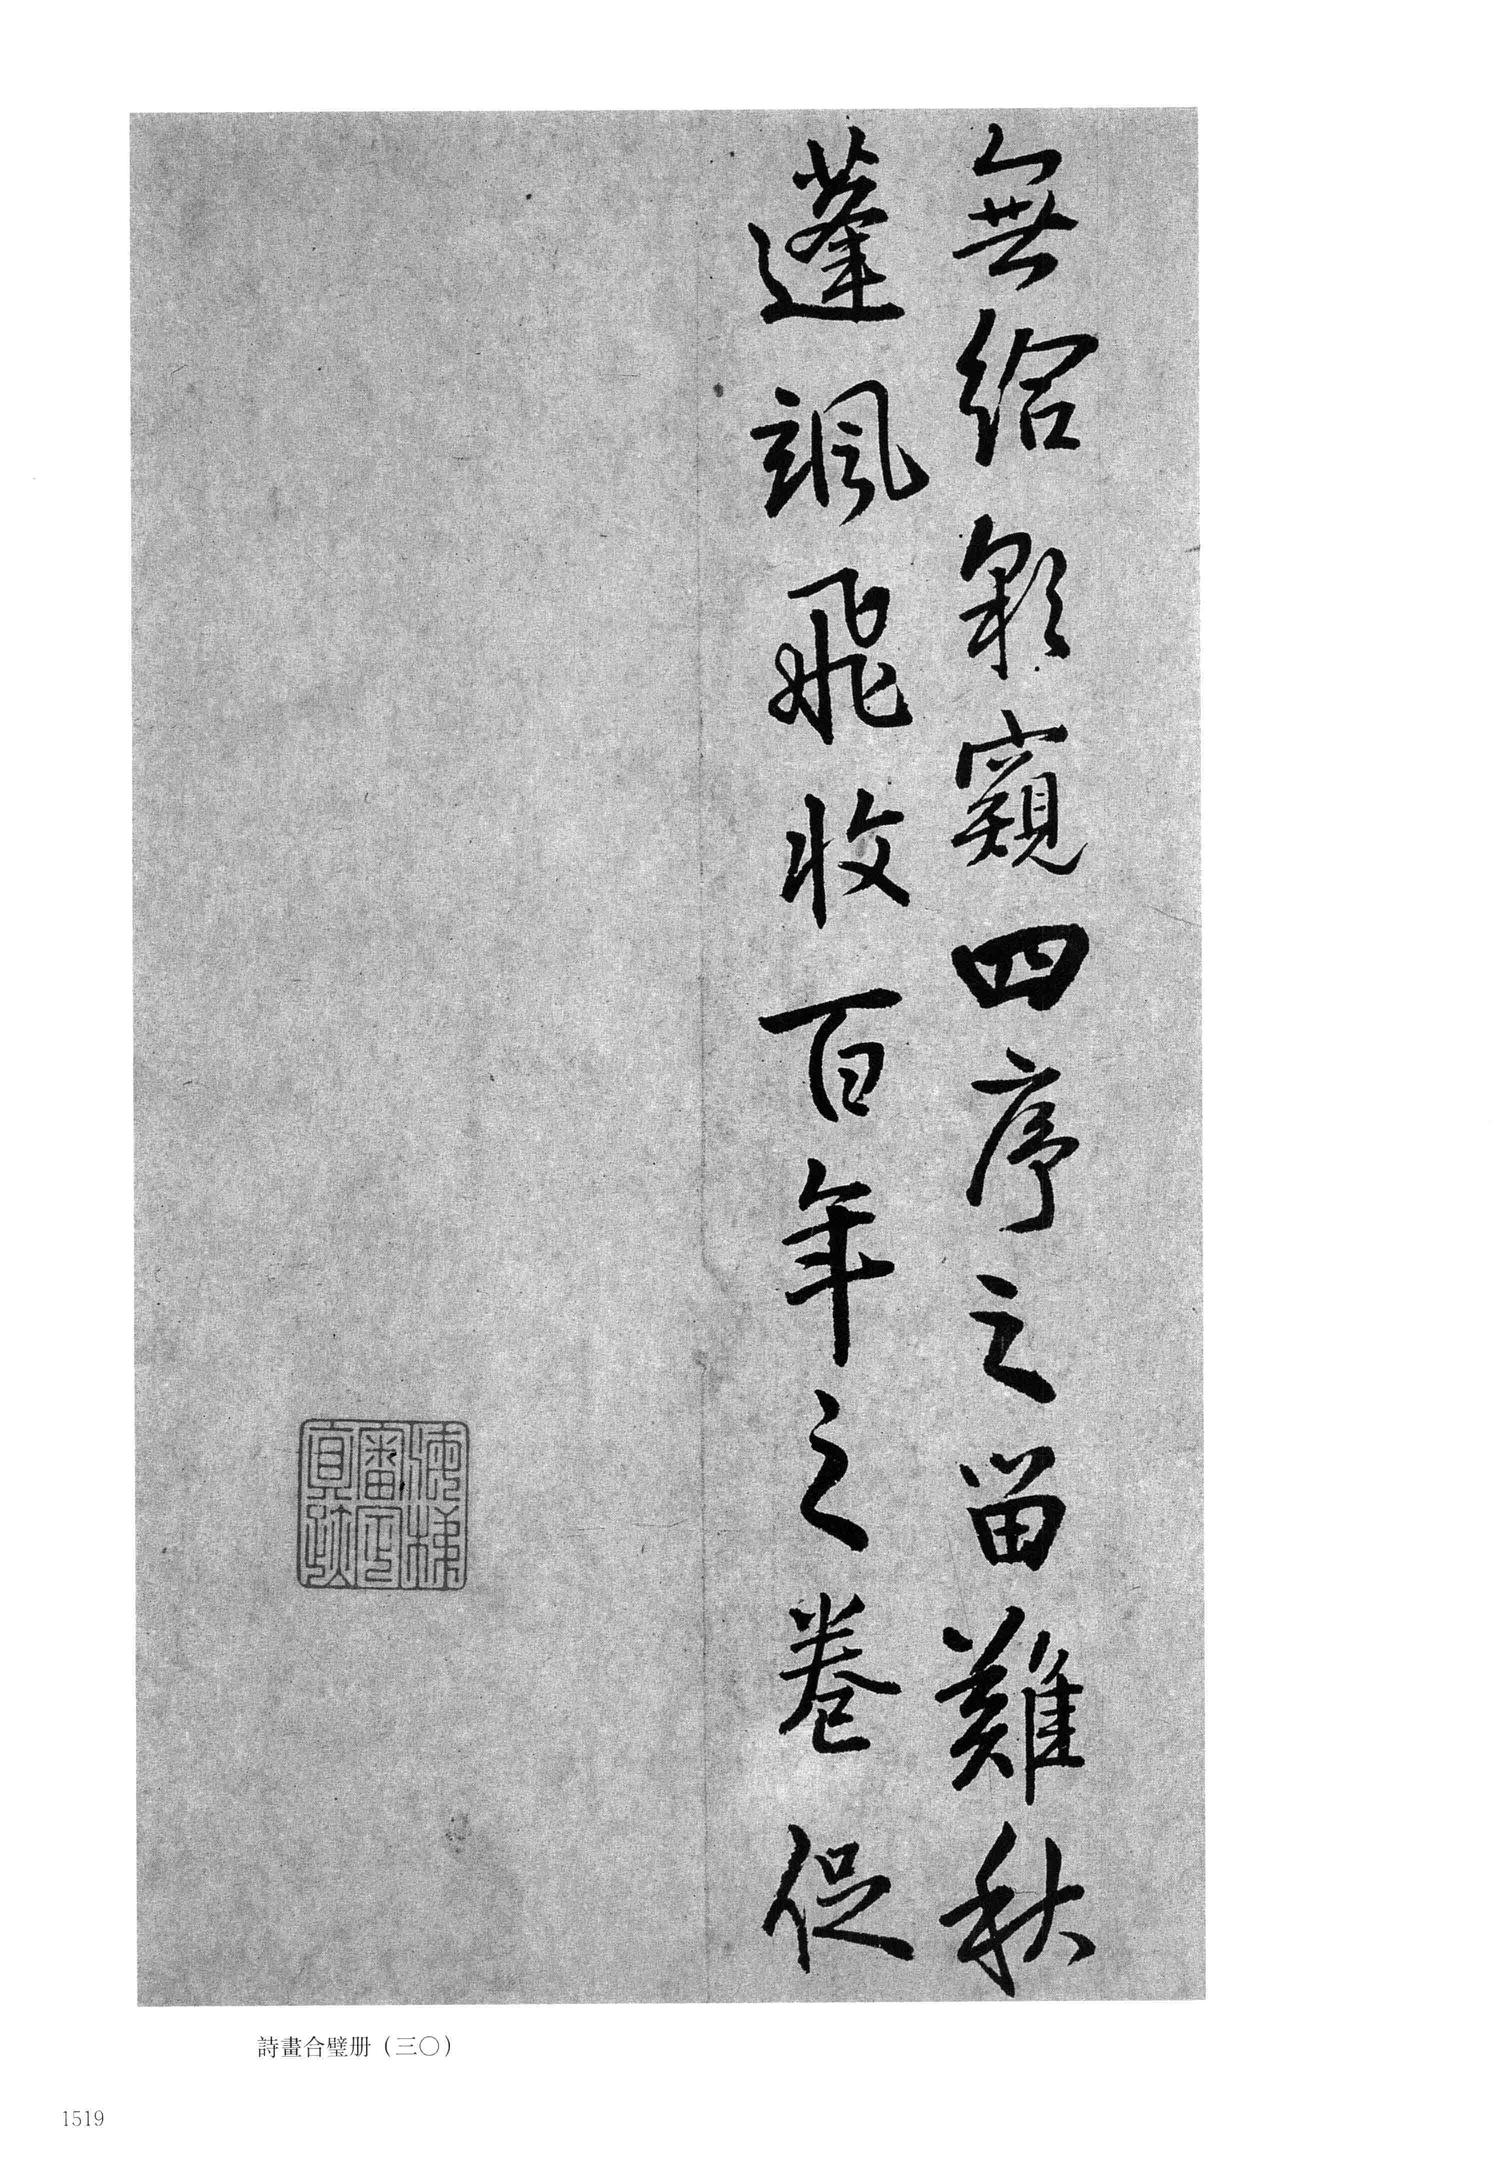 無給影窺四序之留難秋
蓬颯飛收百年之卷促
審定
真跡
詩畫合璧册（三〇）
1519